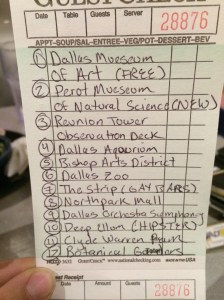 GUEST CHECK
Date Table Guests Server
28876
APPT-SOUP/SAL-ENTREE-VEG/POT-DESSERT-BEV
① Dallas Mueseum
Of Art (FREE)
② Perot Mueseum
Of Natural Science (NEW)
③ Reunion Tower
Observation Deck
④ Dallas Aquarium
⑤ Bishop Arts District
⑥ Dallas Zoo
⑦ The Strip (GAY BARS)
⑧ Northpark Mall
⑨ Dallas Orchestra Symphony
⑩ Deep Ellum (HIPSTER)
⑪ Clyde Warren Park
⑫ Botanical Gardens
Guest Receipt
28876
Date Amount Guests